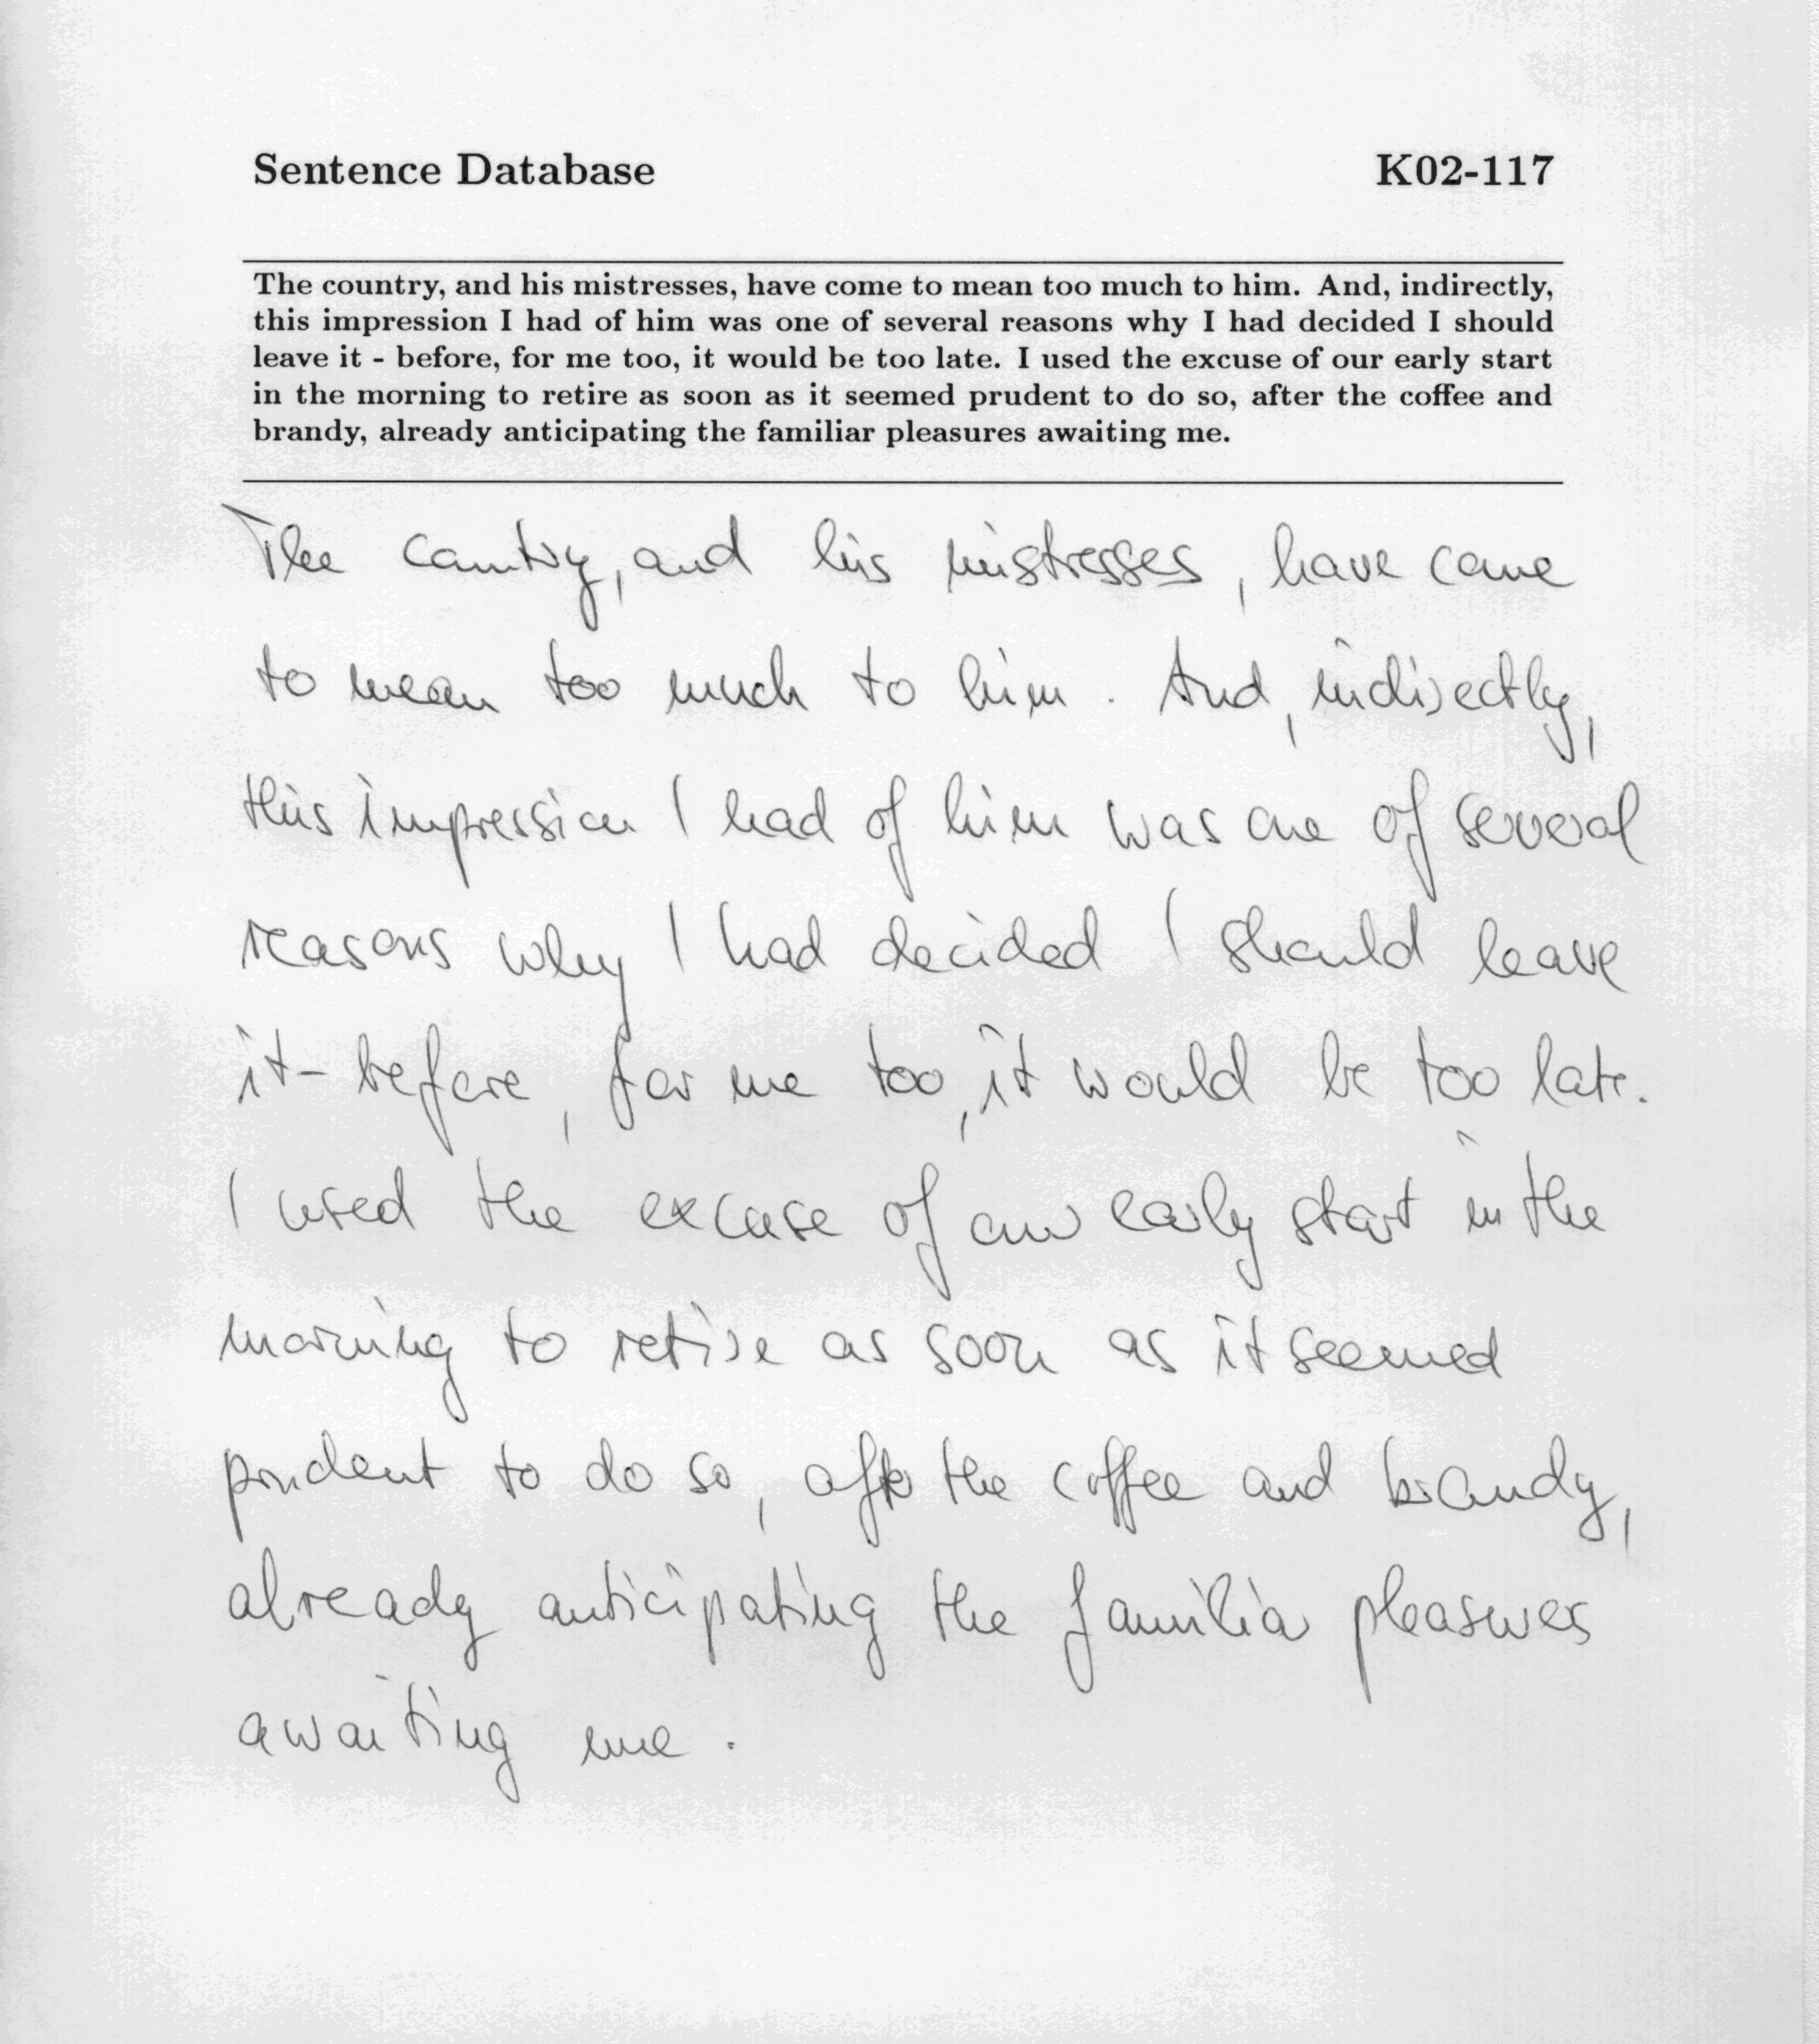 Sentence Database K02-117
The country, and his mistresses, have come to mean too much to him. And, indirectly,
this impression I had of him was one of several reasons why I had decided I should
leave it - before, for me too, it would be too late. I used the excuse of our early start
in the morning to retire as soon as it seemed prudent to do so, after the coffee and
brandy, already anticipating the familiar pleasures awaiting me.
The country, and his mistresses, have come
to mean too much to him. And, indirectly,
this impression I had of him was one of several
reasons why I had decided I should leave
it - before, for me too, it would be too late.
I used the excuse of our early start in the
morning to retire as soon as it seemed
prudent to do so, after the coffee and brandy,
already anticipating the familiar pleasures
awaiting me.